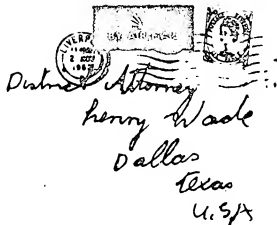 LIVERP
BY AIR MAIL
District Attorney
Henry Wade
Dallas
Texas
U.S.A